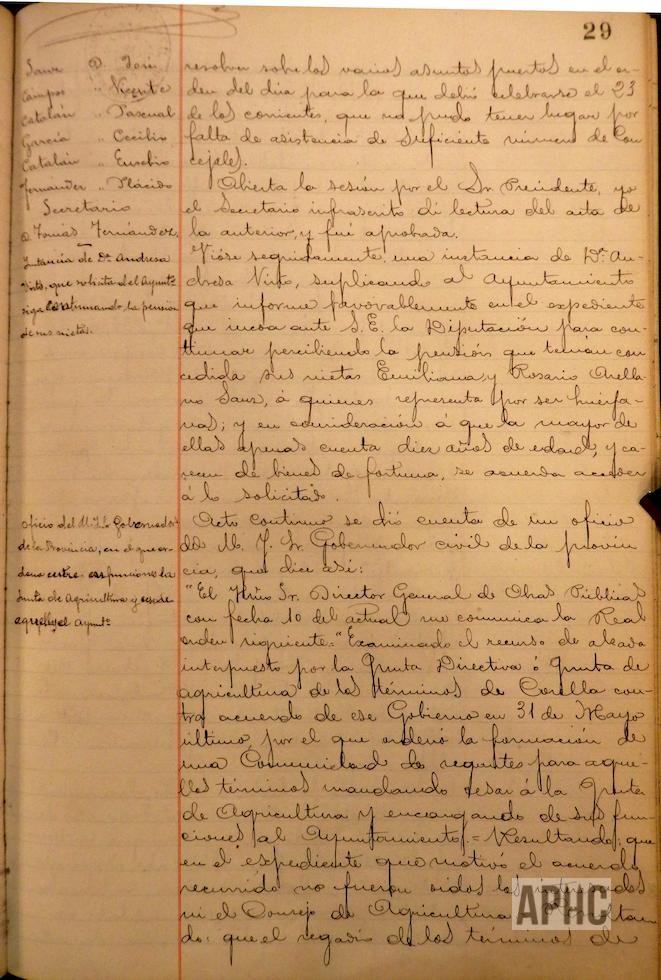 29
Sanz D. José
Campos " Vicente
Catalán " Pascual
García " Cecilio
Catalán " Eusebio
Fernandez " Plácido
Secretario
D Tomás Fernández
Instancia de Dª Andresa
Nirto, que solicita del Ayuntº
siga la pension
de sus nietas.
Oficio del M. I. Sr Gobernador
de la Provincia, en el que or-
dena en funciones la
Junta de Agricultura y
el Ayuntº
resolver sobre los varios asuntos puestos en el or-
den del dia para la que debió celebrarse el 23
de los corrientes, que no pudo tener lugar por
falta de asistencia de suficiente número de Con
cejales.
Abierta la sesión por el Sr. Presidente, yo
el Secretario infrascrito dí lectura del acta de
la anterior, y fué aprobada.
Vióse seguidamente una instancia de Dª An-
dresa Nirto, suplicando al Ayuntamiento
que informe favorablemente en el expediente
que incoa ante S. E. la Diputación para con-
tinuar percibiendo la pensión que tenían con
cedida sus nietas Emiliana y Rosario Arella-
no Sanz, á quienes representa por ser huérfa-
nas; y en consideración á que la mayor de
ellas apenas cuenta diez años de edad, y ca-
recen de bienes de fortuna, se acuerda acceder
á lo solicitado.
Acto continuo se dió cuenta de un oficio
del M. I. Sr. Gobernador civil de la provin
cia, que dice así:
"El Ilmo Sr. Director General de Obras Públicas
con fecha 10 del actual me comunica la Real
orden siguiente: "Examinado el recurso de alzada
interpuesto por la Junta Directiva ó Junta de
agricultura de los términos de Corella con-
tra acuerdo de ese Gobierno en 31 de Mayo
último, por el que ordenó la formación de
una Comunidad de regantes para aque-
llos términos mandando cesar á la Junta
de Agricultura y encargando de sus fun-
ciones al Ayuntamiento = Resultando: que
en el expediente que motivó el acuerdo
recurrido no fueron oidos los interesados
ni el Consejo de Agricultura = Resultan
do: que el regadío de los términos de
APHC